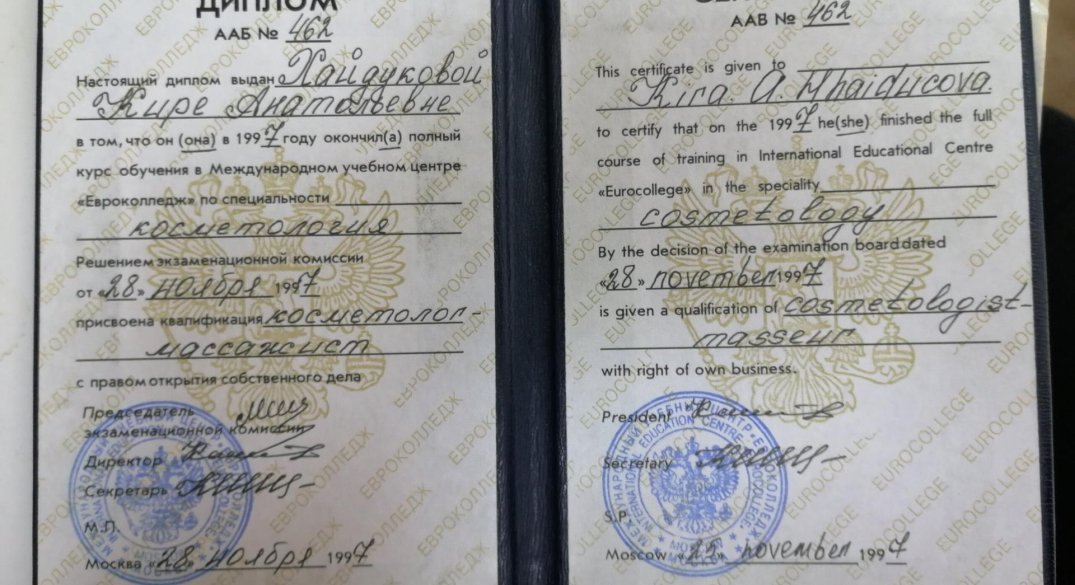 ДИПЛОМ
ААБ № 462
Настоящий диплом выдан Хайдуковой
Кире Анатольевне
в том, что он (она) в 1997 году окончил(а) полный
курс обучения в Международном учебном центре
«Евроколледж» по специальности
косметология
Решением экзаменационной комиссии
от «28» ноября 1997
присвоена квалификация косметолог-
массажист
с правом открытия собственного дела
Председатель
экзаменационной комиссии
Директор
Секретарь
М.П.
Москва «28» ноября 1997
ААВ № 462
This certificate is given to
Kira A. Khaiducova
to certify that on the 1997 he(she) finished the full
course of training in International Educational Centre
«Eurocollege» in the speciality
cosmetology
By the decision of the examination board dated
«28» november 1997
is given a qualification of cosmetologist-
masseur
with right of own business.
President
Secretary
S.P.
Moscow november 1997